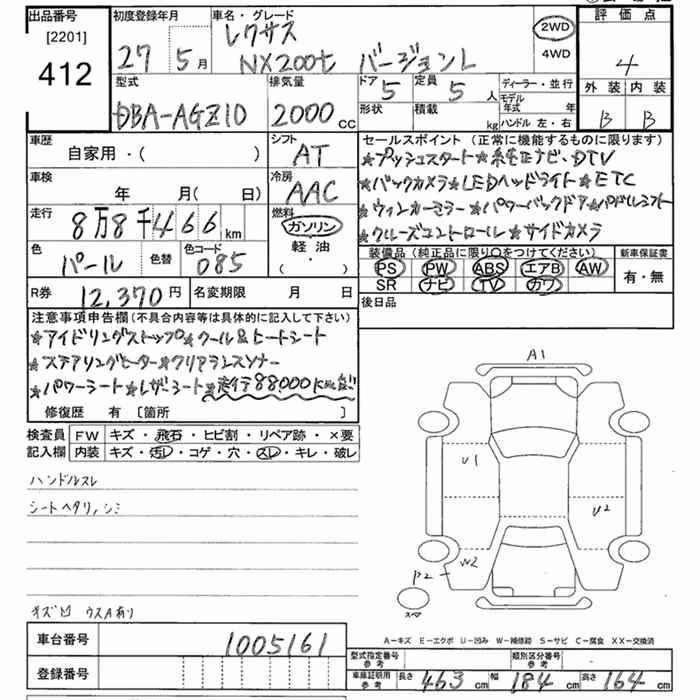 出品番号
[2201]
412
初度登録年月
27 5月
車名・グレード
レクサス
NX200t バージョンL
2WD
4WD
評価点
4
外装 内装
B B
型式
DBA-AGZ10
排気量
2000 CC
ドア 5
定員 5人
形状
積載 kg
ディーラー・並行
モデル年式 年
ハンドル 左・右
車歴
自家用・( )
シフト
AT
セールスポイント(正常に機能するものに限ります)
★プッシュスタート★純正ナビ・DTV
★バックカメラ★LEDヘッドライト★ETC
★ウィンカーミラー★パワーバックドア★パドルシフト
★クルーズコントロール★サイドカメラ
車検
年 月( 日)
冷房
AAC
走行
8万8千466km
燃料
ガソリン
軽油・
( ・ )
色
パール
色替
色コード
085
装備品(純正品に限り○をつけてください)
PS PW ABS エアB AW
SR ナビ TV カワ
新車保証書
有・無
R券 12,370円
名変期限 月 日
後日品
注意事項申告欄(不具合内容等は具体的に記入して下さい)
★アイドリングストップ★クール&ヒートシート
★ステアリングヒーター★クリアランスソナー
★パワーシート★レザーシート★走行88000km台
修復歴 有[箇所 ]
検査員記入欄
FW キズ・飛石・ヒビ割・リペア跡・×要
内装 キズ・汚レ・コゲ・穴・スレ・キレ・破レ
ハンドルスレ
シートヘタリ,シミ
キズ凹 ウスAあり
A1
U1
U2
W2
P2
スペア
A-キズ E-エクボ U-凹み W-補修跡 S-サビ C-腐食 XX-交換済
車台番号 1005161
登録番号
型式指定番号 参考
類別区分番号 参考
車庫証明用 参考 長さ 463cm 幅 184cm 高さ 164cm